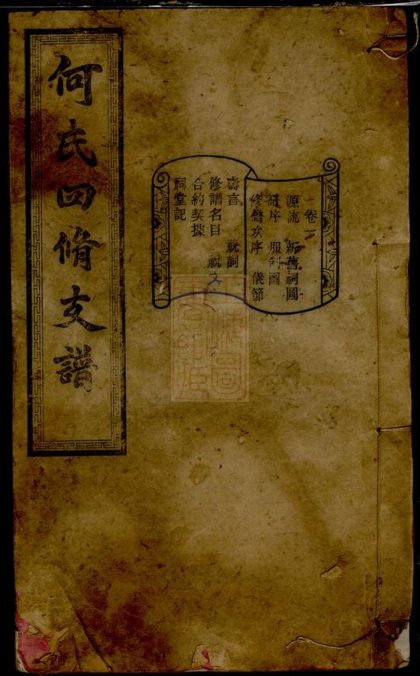 何氏四脩支譜
卷一
源流 新舊祠圖
譜序 服制圖
修譜次序 儀節
壽言 祝詞
修譜名目 祝文
合約契據
祠堂記